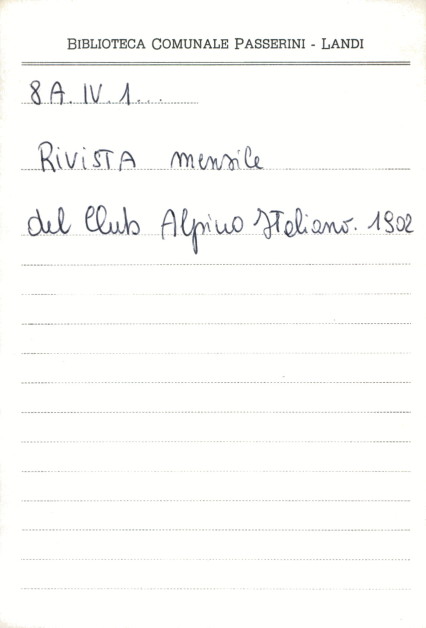 BIBLIOTECA COMUNALE PASSERINI - LANDI
8 A. IV. 1...
RIVISTA mensile
del Club Alpino Italiano. 1902